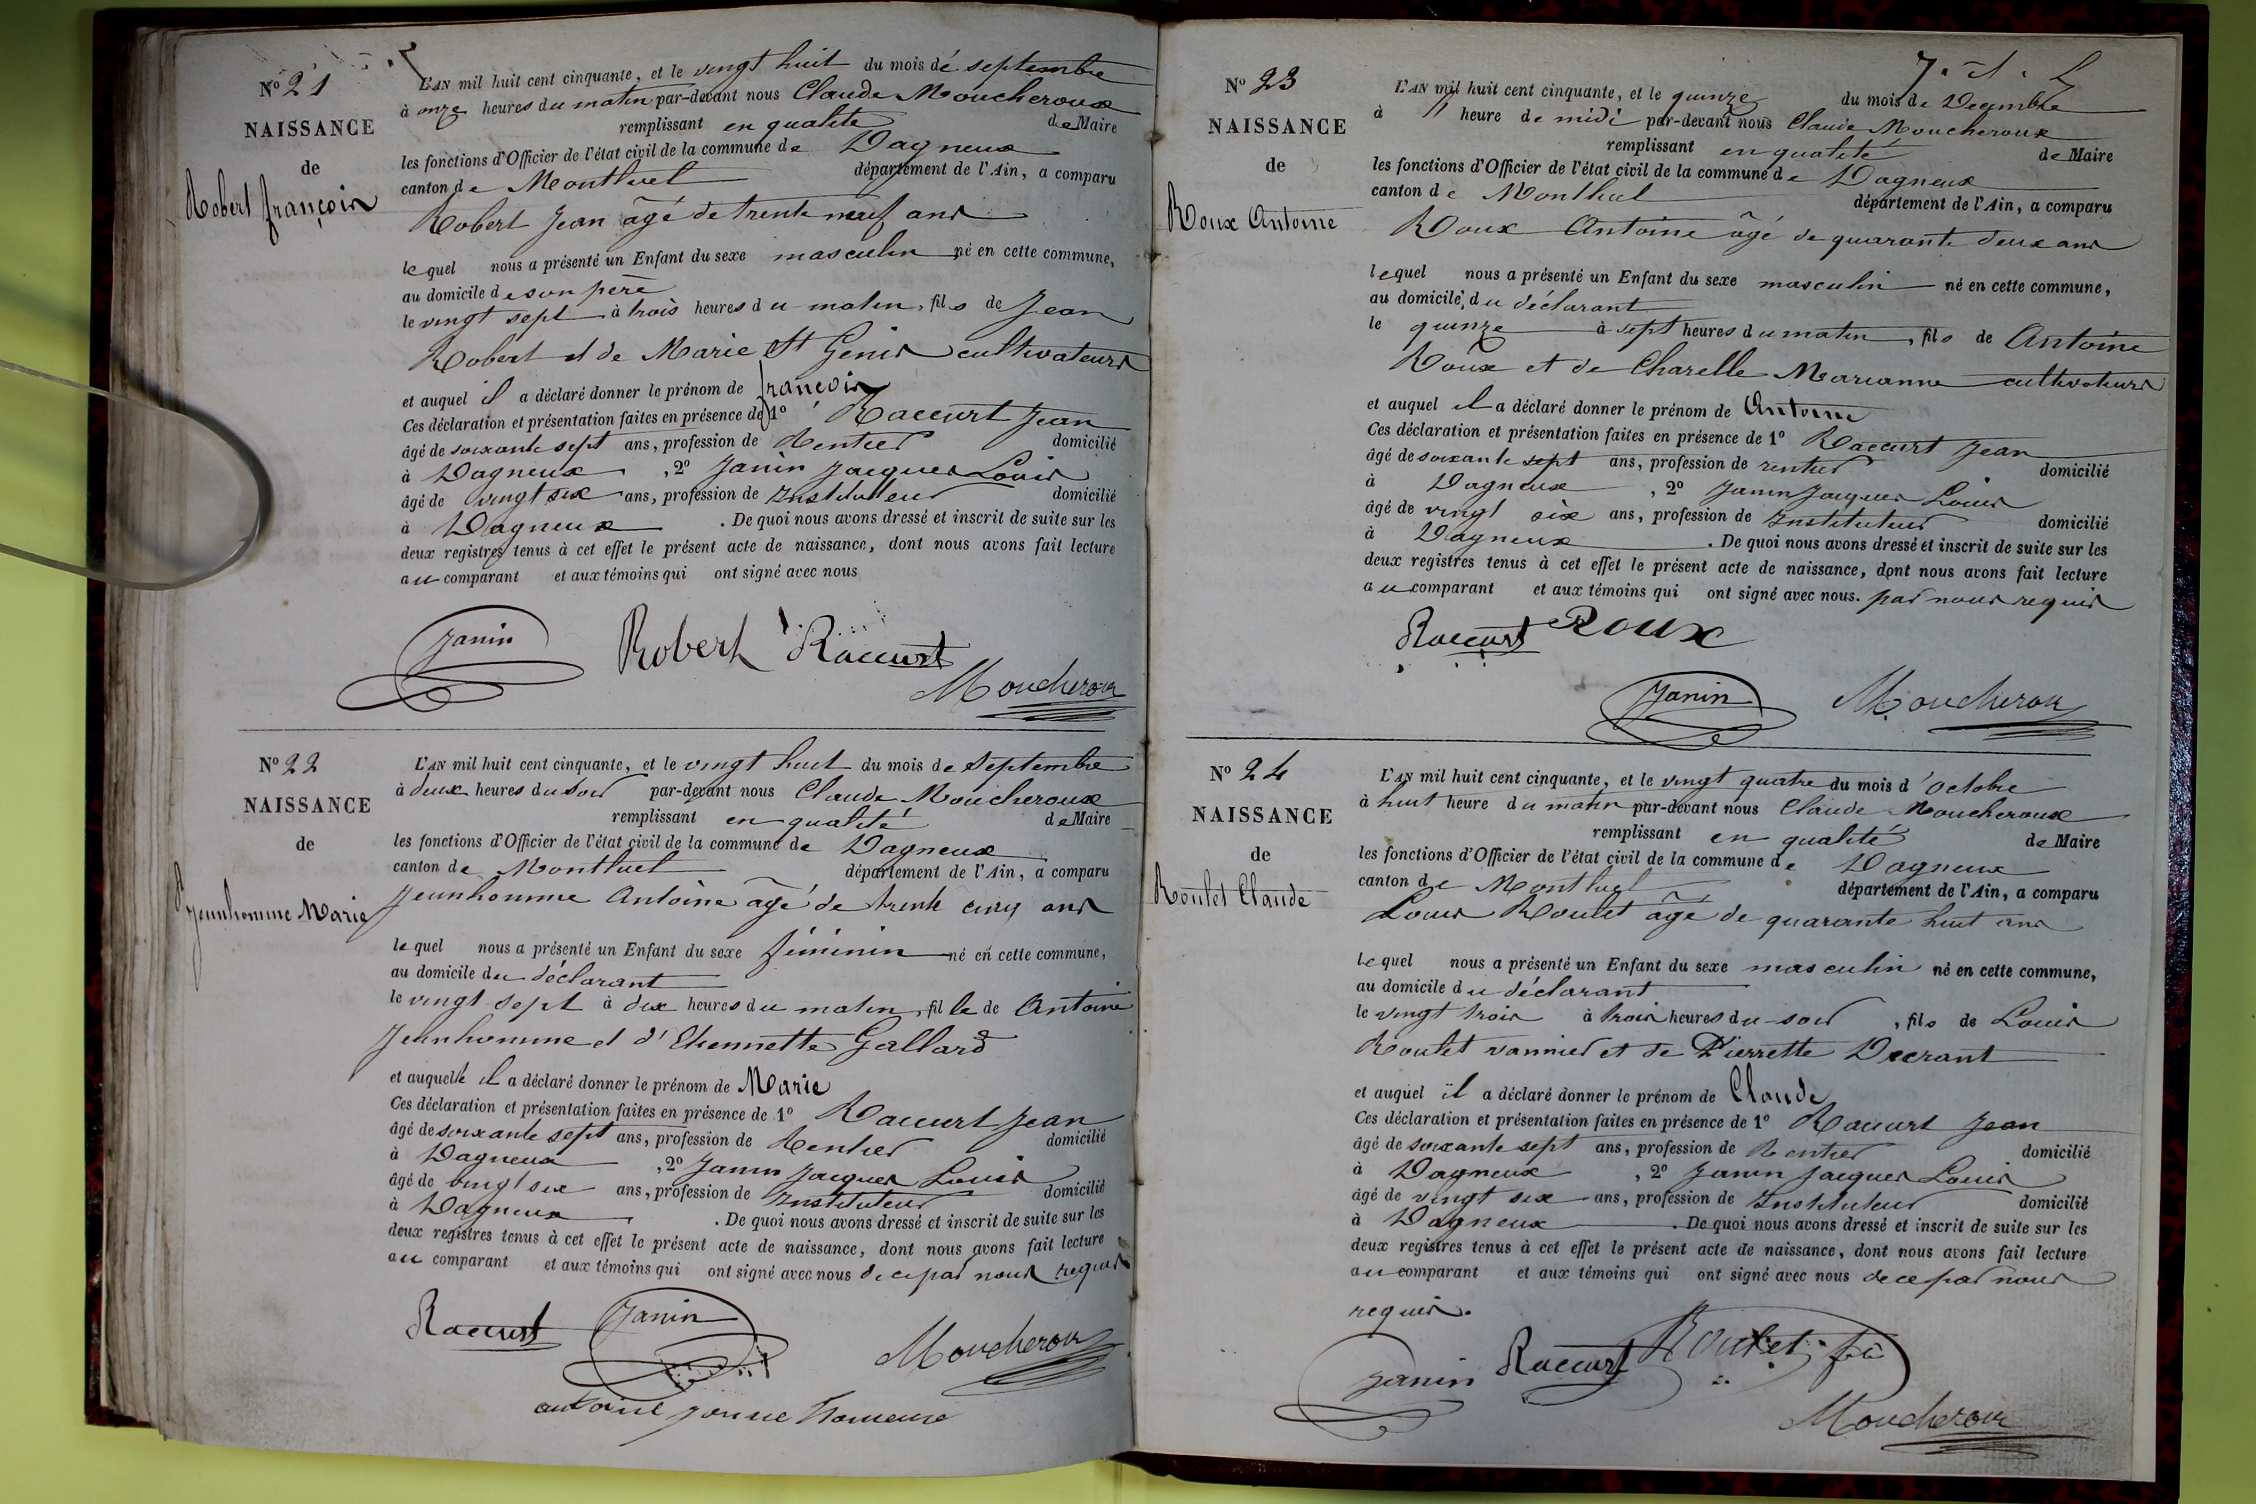 N° 21
NAISSANCE
de
Robert françois
L'AN mil huit cent cinquante, et le vingt huit du mois de septembre
à onze heures du matin par-devant nous Claude Moucheroux
remplissant en qualité de Maire
les fonctions d'Officier de l'état civil de la commune de Dagneux
canton de Montluel département de l'Ain, a comparu
Robert Jean âgé de trente neuf ans
lequel nous a présenté un Enfant du sexe masculin né en cette commune,
au domicile de son père
le vingt sept à trois heures du matin, fils de Jean
Robert et de Marie St Genis cultivateurs
et auquel il a déclaré donner le prénom de françois
Ces déclaration et présentation faites en présence de 1° Raccurt Jean
âgé de soixante sept ans, profession de Rentier domicilié
à Dagneux, 2° Janin Jacques Louis
âgé de vingt six ans, profession de Instituteur domicilié
à Dagneux. De quoi nous avons dressé et inscrit de suite sur les
deux registres tenus à cet effet le présent acte de naissance, dont nous avons fait lecture
au comparant et aux témoins qui ont signé avec nous
Janin Robert Raccurt
Moucheroux
N° 22
NAISSANCE
de
Jeunhomme Marie
L'AN mil huit cent cinquante, et le vingt huit du mois de Septembre
à deux heures du soir par-devant nous Claude Moucheroux
remplissant en qualité de Maire
les fonctions d'Officier de l'état civil de la commune de Dagneux
canton de Montluel département de l'Ain, a comparu
Jeunhomme Antoine âgé de trente cinq ans
lequel nous a présenté un Enfant du sexe féminin né en cette commune,
au domicile du déclarant
le vingt sept à dix heures du matin, fille de Antoine
Jeunhomme et d'Etiennette Gallard
et auquelle il a déclaré donner le prénom de Marie
Ces déclaration et présentation faites en présence de 1° Raccurt Jean
âgé de soixante sept ans, profession de Rentier domicilié
à Dagneux, 2° Janin Jacques Louis
âgé de vingt six ans, profession de Instituteur domicilié
à Dagneux. De quoi nous avons dressé et inscrit de suite sur les
deux registres tenus à cet effet le présent acte de naissance, dont nous avons fait lecture
au comparant et aux témoins qui ont signé avec nous de ce par nous requis
Raccurt Janin Moucheroux
antoine
N° 23
NAISSANCE
de
Roux Antoine
L'AN mil huit cent cinquante, et le quinze du mois de Decembre
à heure de midi par-devant nous Claude Moucheroux
remplissant en qualité de Maire
les fonctions d'Officier de l'état civil de la commune de Dagneux
canton de Montluel département de l'Ain, a comparu
Roux Antoine âgé de quarante deux ans
lequel nous a présenté un Enfant du sexe masculin né en cette commune,
au domicile du déclarant
le quinze à sept heures du matin, fils de Antoine
Roux et de Charelle Marianne cultivateurs
et auquel il a déclaré donner le prénom de Antoine
Ces déclaration et présentation faites en présence de 1° Raccurt Jean
âgé de soixante sept ans, profession de rentier domicilié
à Dagneux, 2° Janin Jacques Louis
âgé de vingt six ans, profession de Instituteur domicilié
à Dagneux. De quoi nous avons dressé et inscrit de suite sur les
deux registres tenus à cet effet le présent acte de naissance, dont nous avons fait lecture
au comparant et aux témoins qui ont signé avec nous. par nous requis
Raccurt Roux
Janin Moucheroux
N° 24
NAISSANCE
de
Roulet Claude
L'AN mil huit cent cinquante, et le vingt quatre du mois d'octobre
à huit heure du matin par-devant nous Claude Moucheroux
remplissant en qualité de Maire
les fonctions d'Officier de l'état civil de la commune de Dagneux
canton de Montluel département de l'Ain, a comparu
Louis Roulet âgé de quarante huit ans
lequel nous a présenté un Enfant du sexe masculin né en cette commune,
au domicile du déclarant
le vingt trois à trois heures du soir, fils de Louis
Roulet vannier et de Pierrette Decrant
et auquel il a déclaré donner le prénom de Claude
Ces déclaration et présentation faites en présence de 1° Raccurt Jean
âgé de soixante sept ans, profession de Rentier domicilié
à Dagneux, 2° Janin Jacques Louis
âgé de vingt six ans, profession de Instituteur domicilié
à Dagneux. De quoi nous avons dressé et inscrit de suite sur les
deux registres tenus à cet effet le présent acte de naissance, dont nous avons fait lecture
au comparant et aux témoins qui ont signé avec nous de ce par nous
requis.
Janin Raccurt Roulet
Moucheroux